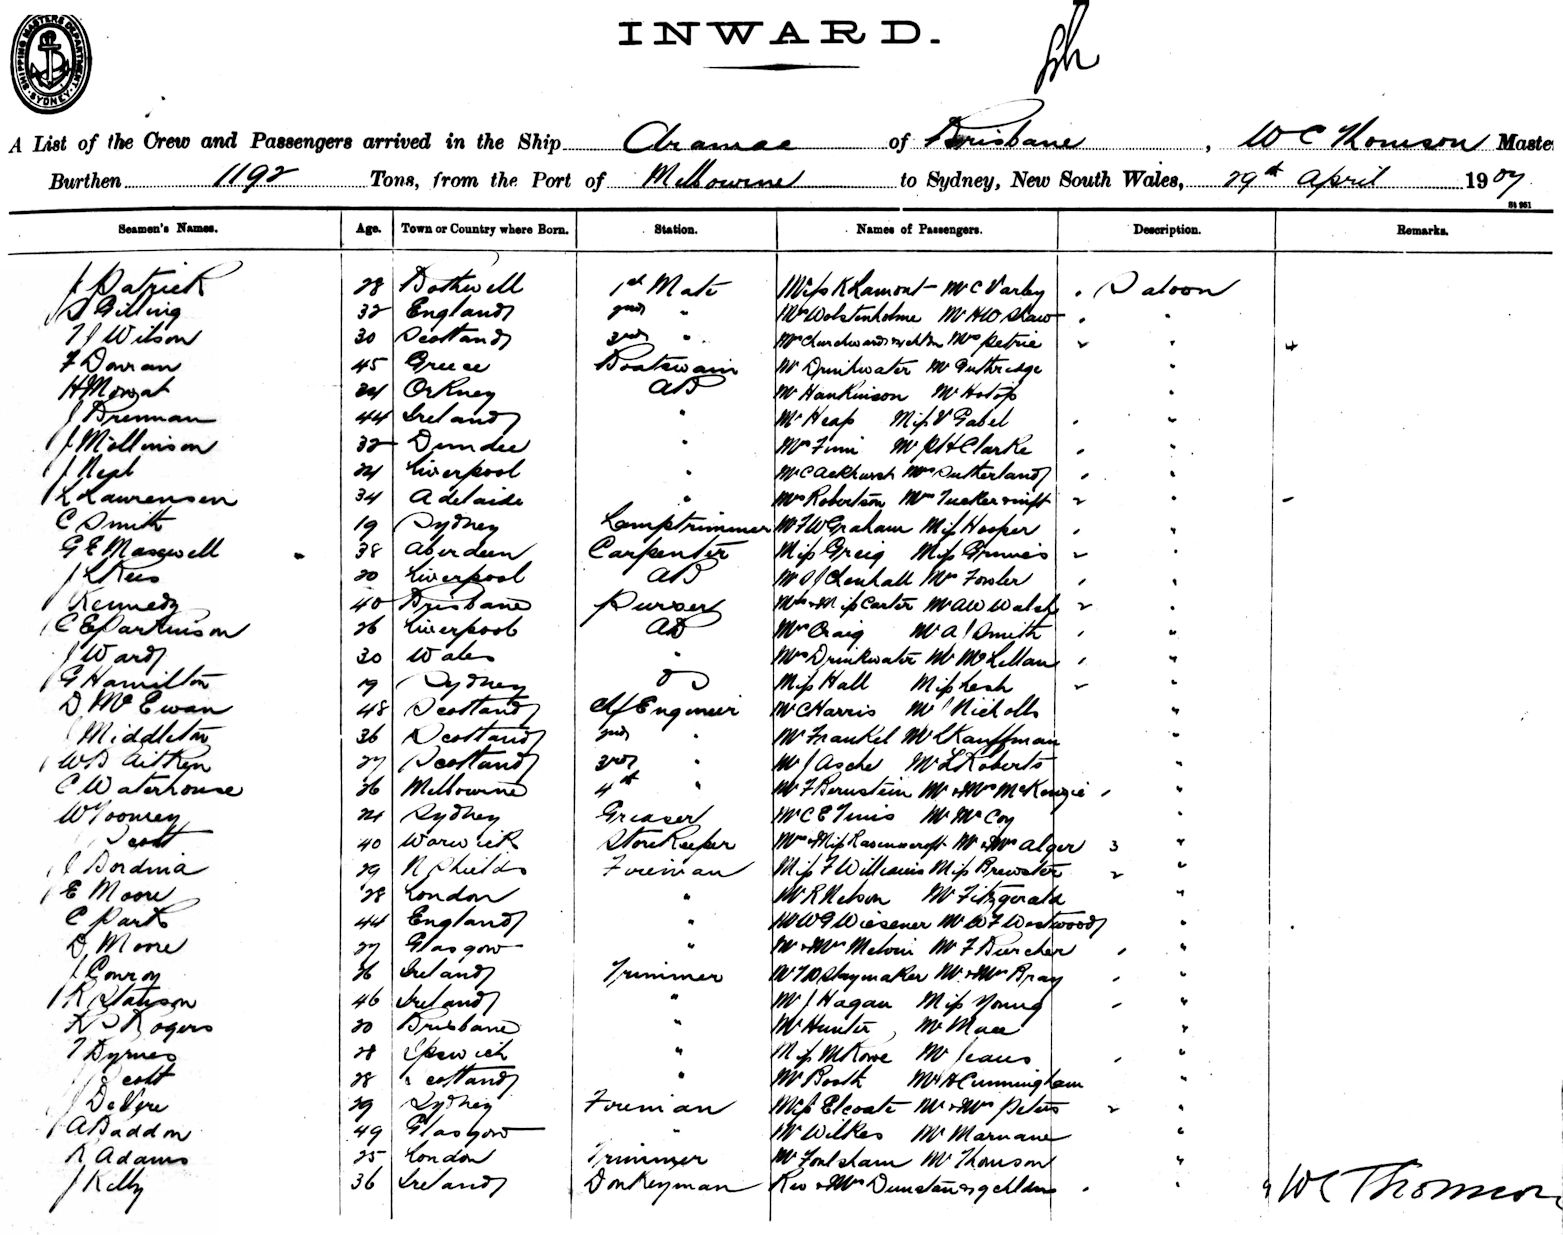 INWARD.
SHIPPING MASTERS DEPARTMENT SYDNEY
A List of the Crew and Passengers arrived in the Ship Aramac of Brisbane, W C Thomson Maste
Burthen 1192 Tons, from the Port of Melbourne to Sydney, New South Wales, 29th April 1907
St 951
Seamen's Names. Age. Town or Country where Born. Station. Names of Passengers. Description. Remarks.
J Patrick 28 Bothwell 1st Mate Miss K Lamont Mr C Varley Saloon
S Gilling 32 England 2nd " Mr Wolstenholme Mr H W Shaw "
T J Wilson 30 Scotland 3rd " Mrs Petrie "
F Dowran 45 Greece Boatswain Mr Drinkwater Mr Guthridge "
H Mowat 24 Orkney AB Mr Hankinson Mr Hotop "
J Brennan 44 Ireland " Mr Heap Miss V Gabel "
J Mollinson 32 Dundee " Mr Finn Mr P H Clarke "
J Neal 24 Liverpool " Mr C Ackhurst Mrs Sutherland "
L Laurensen 34 Adelaide " Mrs Robertson Mrs Tucker & inft "
C Smith 19 Sydney Lamptrimmer Mr F W Graham Miss Hooper "
G E Maxwell 38 Aberdeen Carpenter Miss Greig Miss "
J L Rees 20 Liverpool AB Mr S J Clenhall Mrs Fowler "
J Kennedy 40 Brisbane Purser Mrs & Miss Carter Mr A W Walsh "
C E Parkinson 26 Liverpool AB Mrs Craig Mr A J Smith "
J Ward 30 Wales " Mrs Drinkwater Mr McLellan "
G Hamilton 19 Sydney OS Miss Hall Miss Lesh "
D McEwan 48 Scotland Chf Engineer Mr C Harris Mr J Nicholls "
J Middleton 36 Scotland 2nd " Mr Frankel Mr L Kauffman "
W B Aitken 27 Scotland 3rd " Mr J Asche Mr L Roberts "
C Waterhouse 26 Melbourne 4th " Mr F Bernstein Mr & Mrs McKenzie "
W Toomey 24 Sydney Greaser Mr C E Tinis Mr McCoy "
J Scott 40 Warwick Storekeeper Mrs & Miss Ravenscroft Mr & Mrs Alger 3 "
J Bordinia 29 N Shields Fireman Miss F Williams Miss Brewster 2 "
E Moore 28 London " Mr R Nelson Mr Fitzgerald "
C Park 44 England " Mr W G Wiesener Mr W F Westwood "
D Moore 27 Glasgow " Mr & Mrs Melvin Mr F Buercher "
J Conroy 26 Ireland Trimmer Mr F W Slaymaker Mr & Mrs Bray "
R Statison 46 Ireland " Mr J Hagan Miss Young "
R S Rogers 20 Brisbane " Mr Hunter Mr Mace "
T Byrnes 28 Ipswich " Miss M Rowe Mr Jeans "
J Scott 28 Scotland " Mr Booth Mr H Cunningham "
J DeVere 29 Sydney Fireman Miss Elcoate Mr & Mrs Peters 2 "
A Baddon 49 Glasgow " Mr Wilkes Mr Marnane "
R Adams 25 London Trimmer Mr Foulsham Mr Thomson "
J Kelly 36 Ireland Donkeyman Rev & Mrs Dunstan & 9 chldn "
W C Thomson